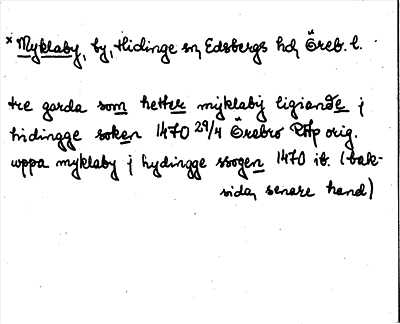 × Myklaby, by, Hidinge sn, Edsbergs hd, Öreb. l.
tre garda som hetter myklabÿ ligiande j
hidingge soken 1470 29/4 Örebro RHp orig.
uppa myklaby j hydingge ssogen 1470 ib. (bak-
sida, senare hand)